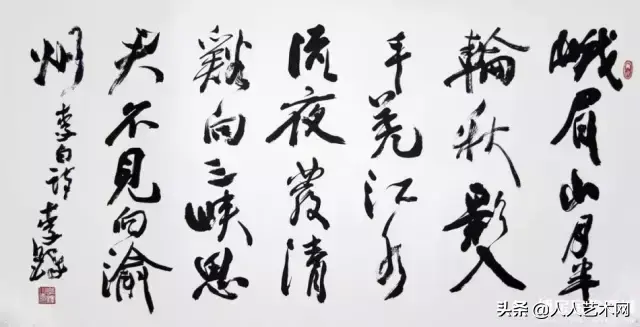 峨眉山月半
輪秋影入
平羌江水
流夜發清
谿向三峽思
君不見向渝
州
李白詩 李鐸
头条 @人人艺术网